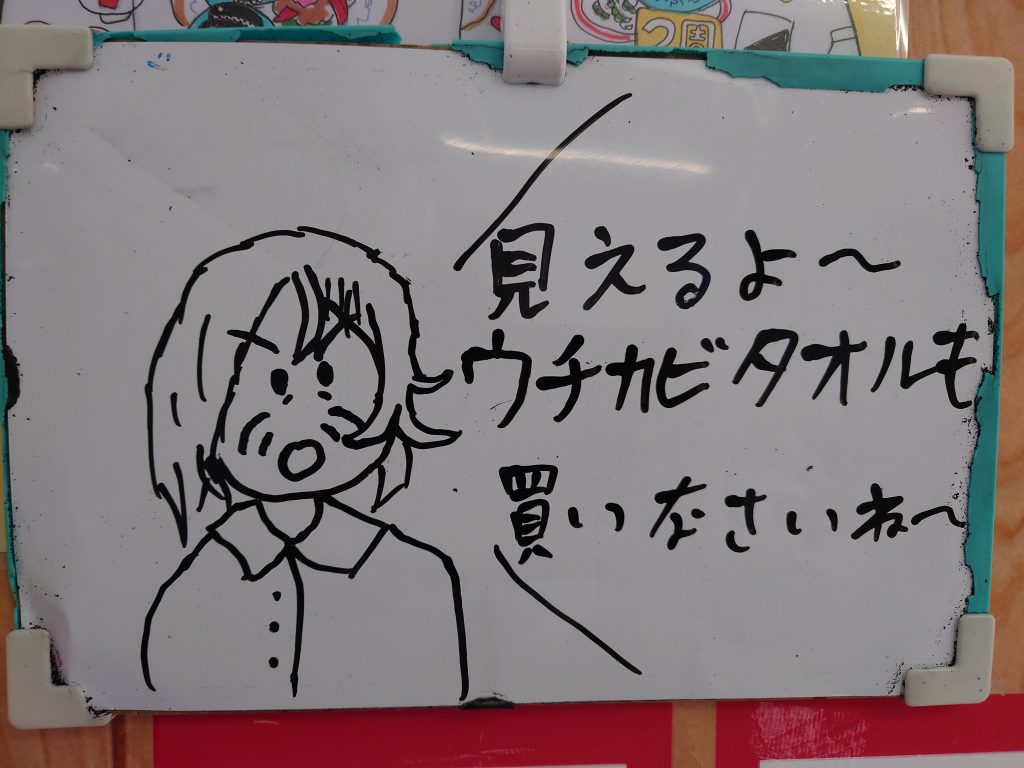 2周
見えるよ～
ウチカビタオルも
買いなさいね～